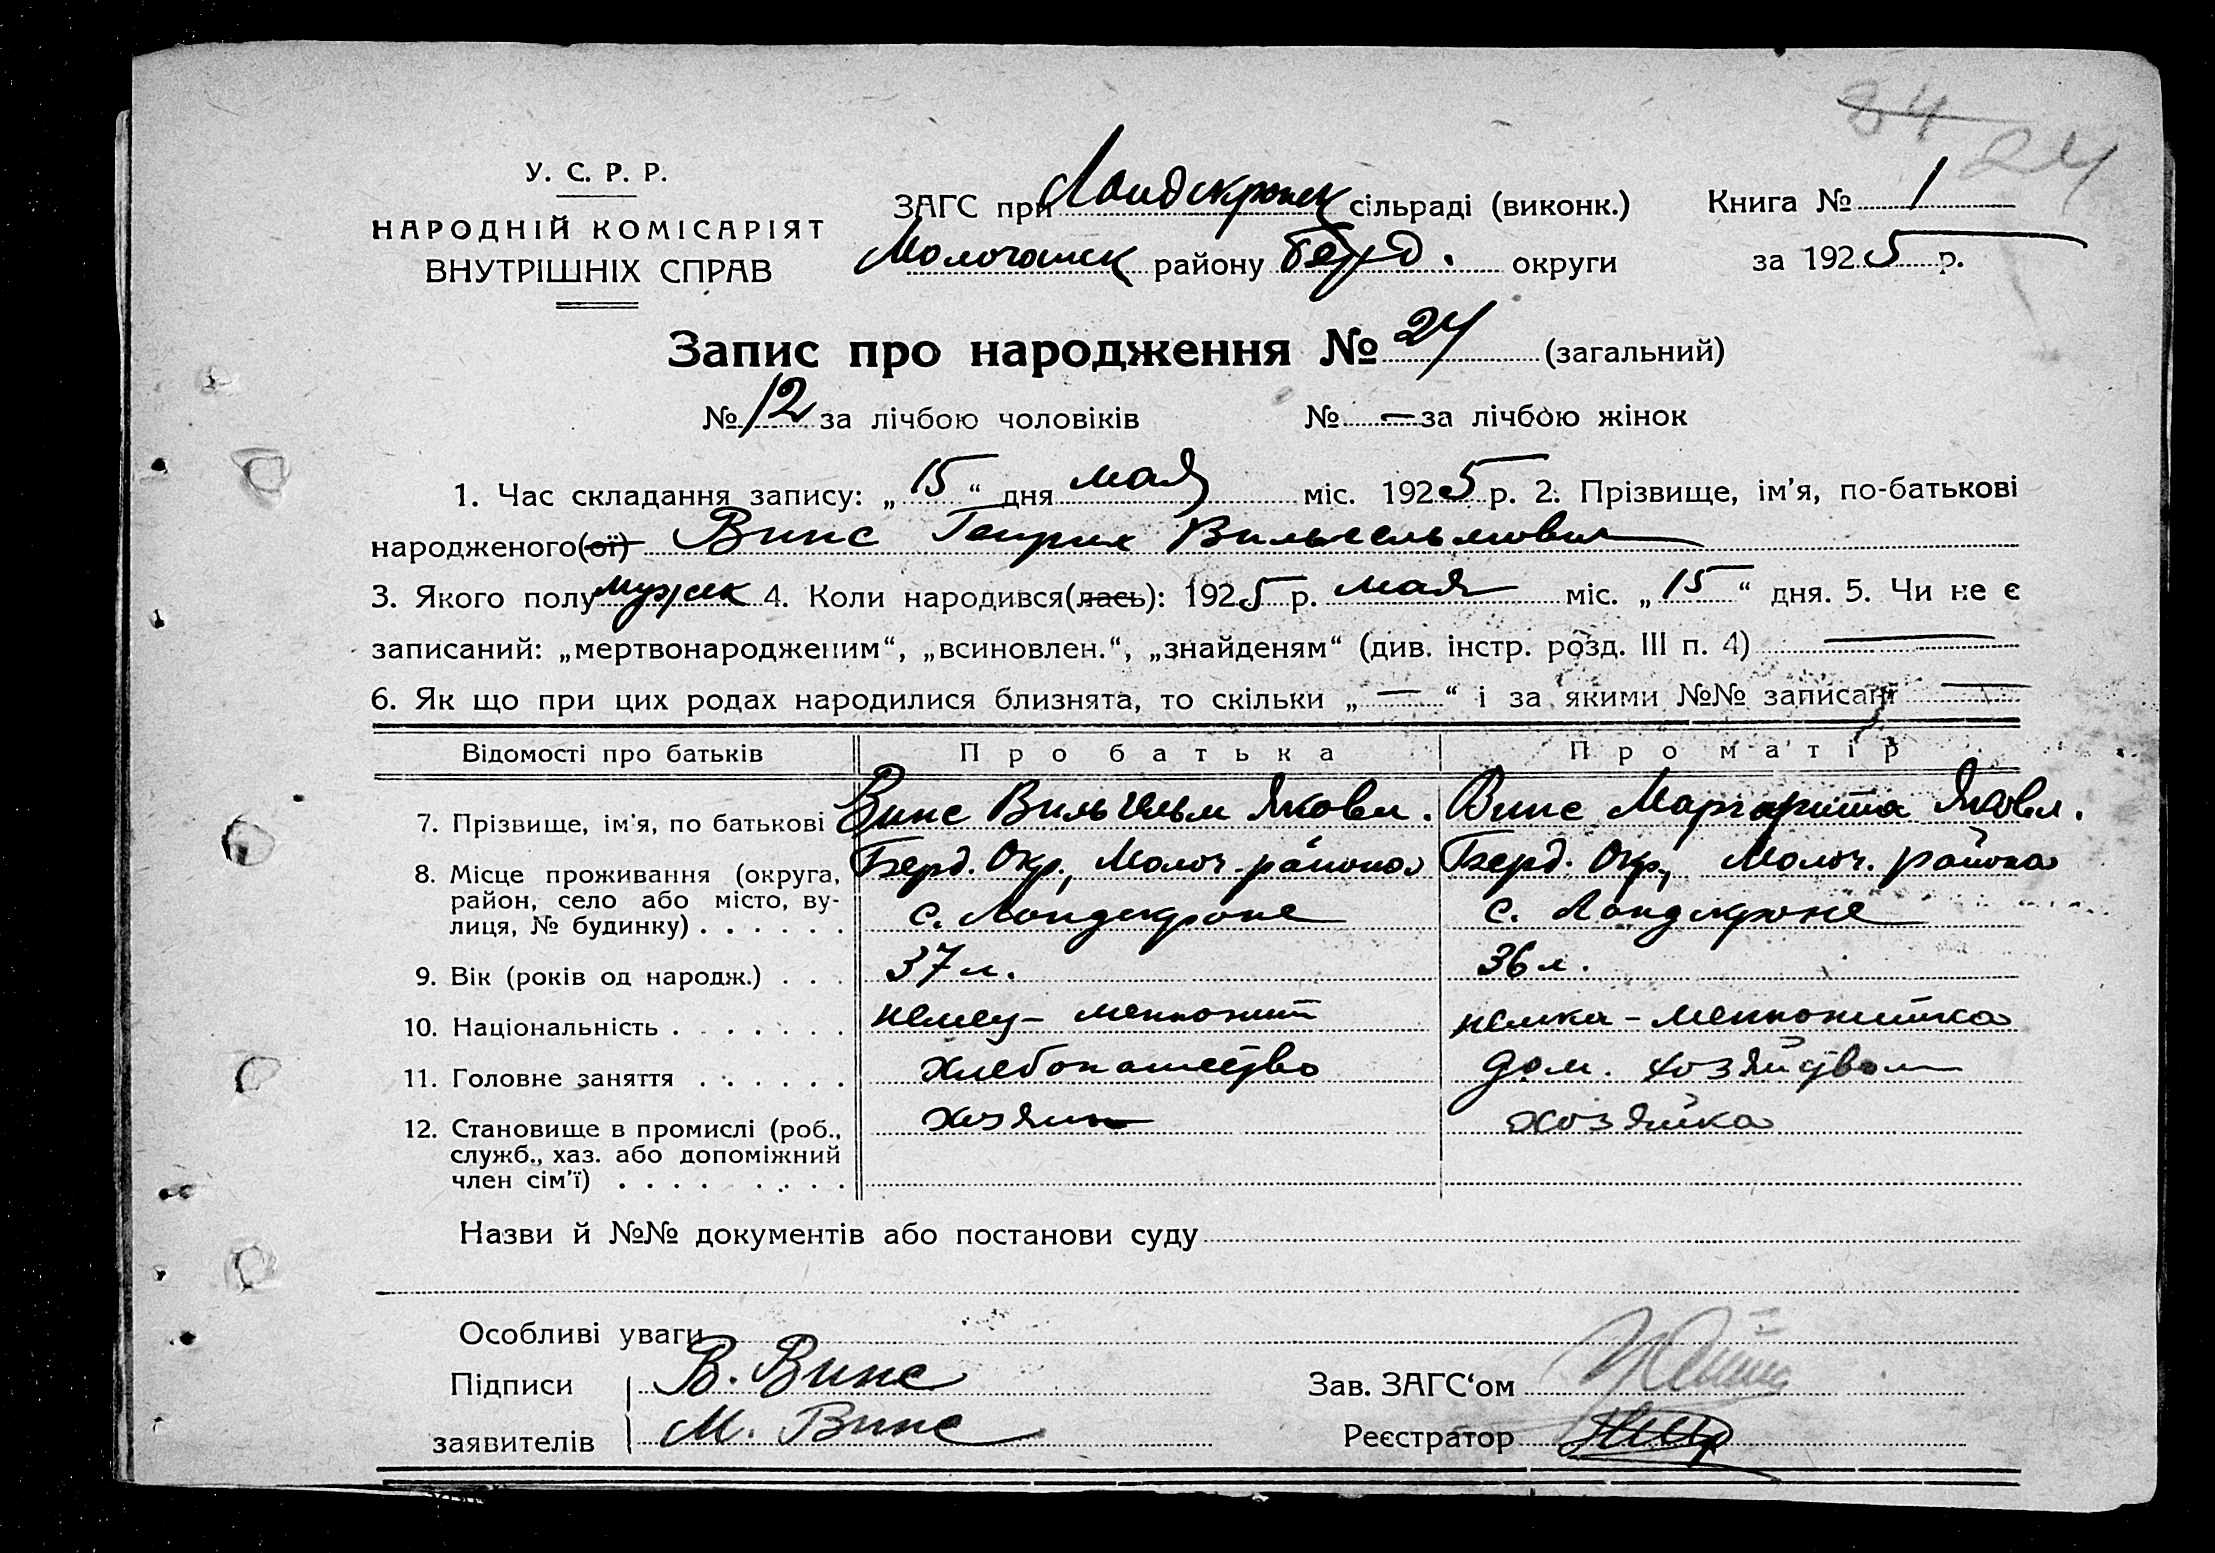 84
24
У. С. Р. Р.
НАРОДНІЙ КОМІСАРІЯТ
ВНУТРІШНІХ СПРАВ
ЗАГС при Ландскронск сільраді (виконк.)
Молочанск району Берд. округи
Книга № 1
за 1925 р.
Запис про народження № 24 (загальний)
№ 12 за лічбою чоловіків № — за лічбою жінок
1. Час складання запису: „15“ дня мая міс. 1925 р. 2. Прізвище, ім'я, по-батькові
народженого(ої) Винс Генрих Вильгельмович
3. Якого полу мужск 4. Коли народився(лась): 1925 р. мая міс. „15“ дня. 5. Чи не є
записаний: „мертвонародженим“, „всиновлен.“, „знайденям“ (див. інстр. розд. III п. 4) —
6. Як що при цих родах народилися близнята, то скільки „—“ і за якими №№ записані —
Відомості про батьків Про батька Про матір
7. Прізвище, ім'я, по батькові Винс Вильгельм Яковл. Винс Маргарита Яковл.
8. Місце проживання (округа, Берд. Окр., Молоч. района Берд. Окр., Молоч. района
район, село або місто, ву-
лиця, № будинку) . . . . . . с. Ландскроне с. Ландскроне
9. Вік (років од народж.) . . . 37 л. 36 л.
10. Національність . . . . . . . немец - меннонит немка - меннонитка
11. Головне заняття . . . . . . хлебопашество дом. хозяйством
12. Становище в промислі (роб., хозяин хозяйка
служб., хаз. або допоміжний
член сім'ї) . . . . . . . .
Назви й №№ документів або постанови суду
Особливі уваги
Підписи В. Винс Зав. ЗАГС‘ом
заявителів М. Винс Реєстратор